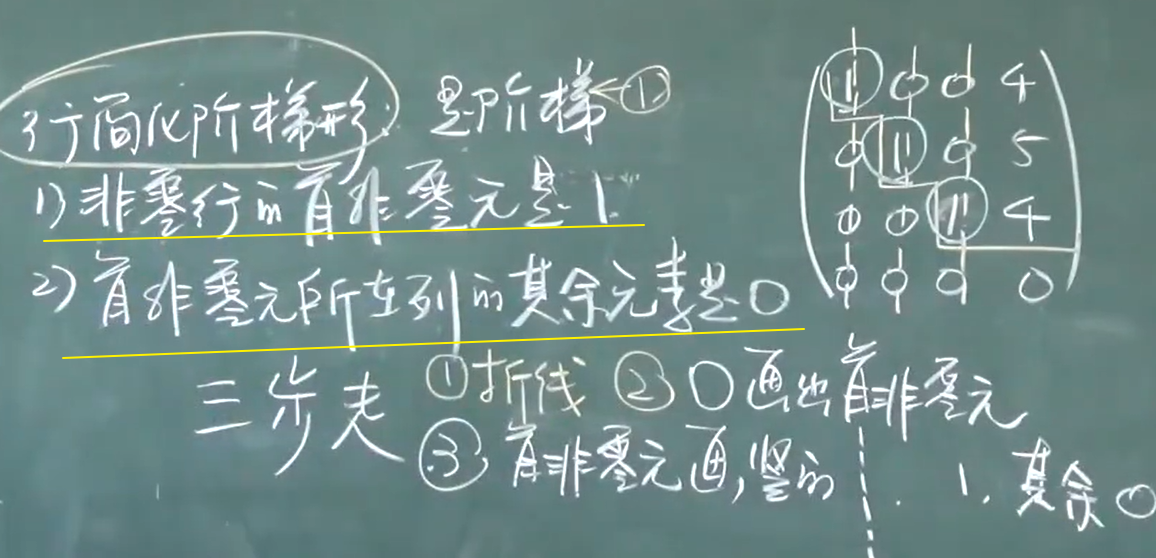 行简化阶梯形 是阶梯←①
1) 非零行的首非零元是1.
2) 首非零元所在列的其余元素是0
三步走 ①折线 ②○画出首非零元
③首非零元画,竖的 1. 其余0
1 0 0 4
0 1 0 5
0 0 1 4
0 0 0 0